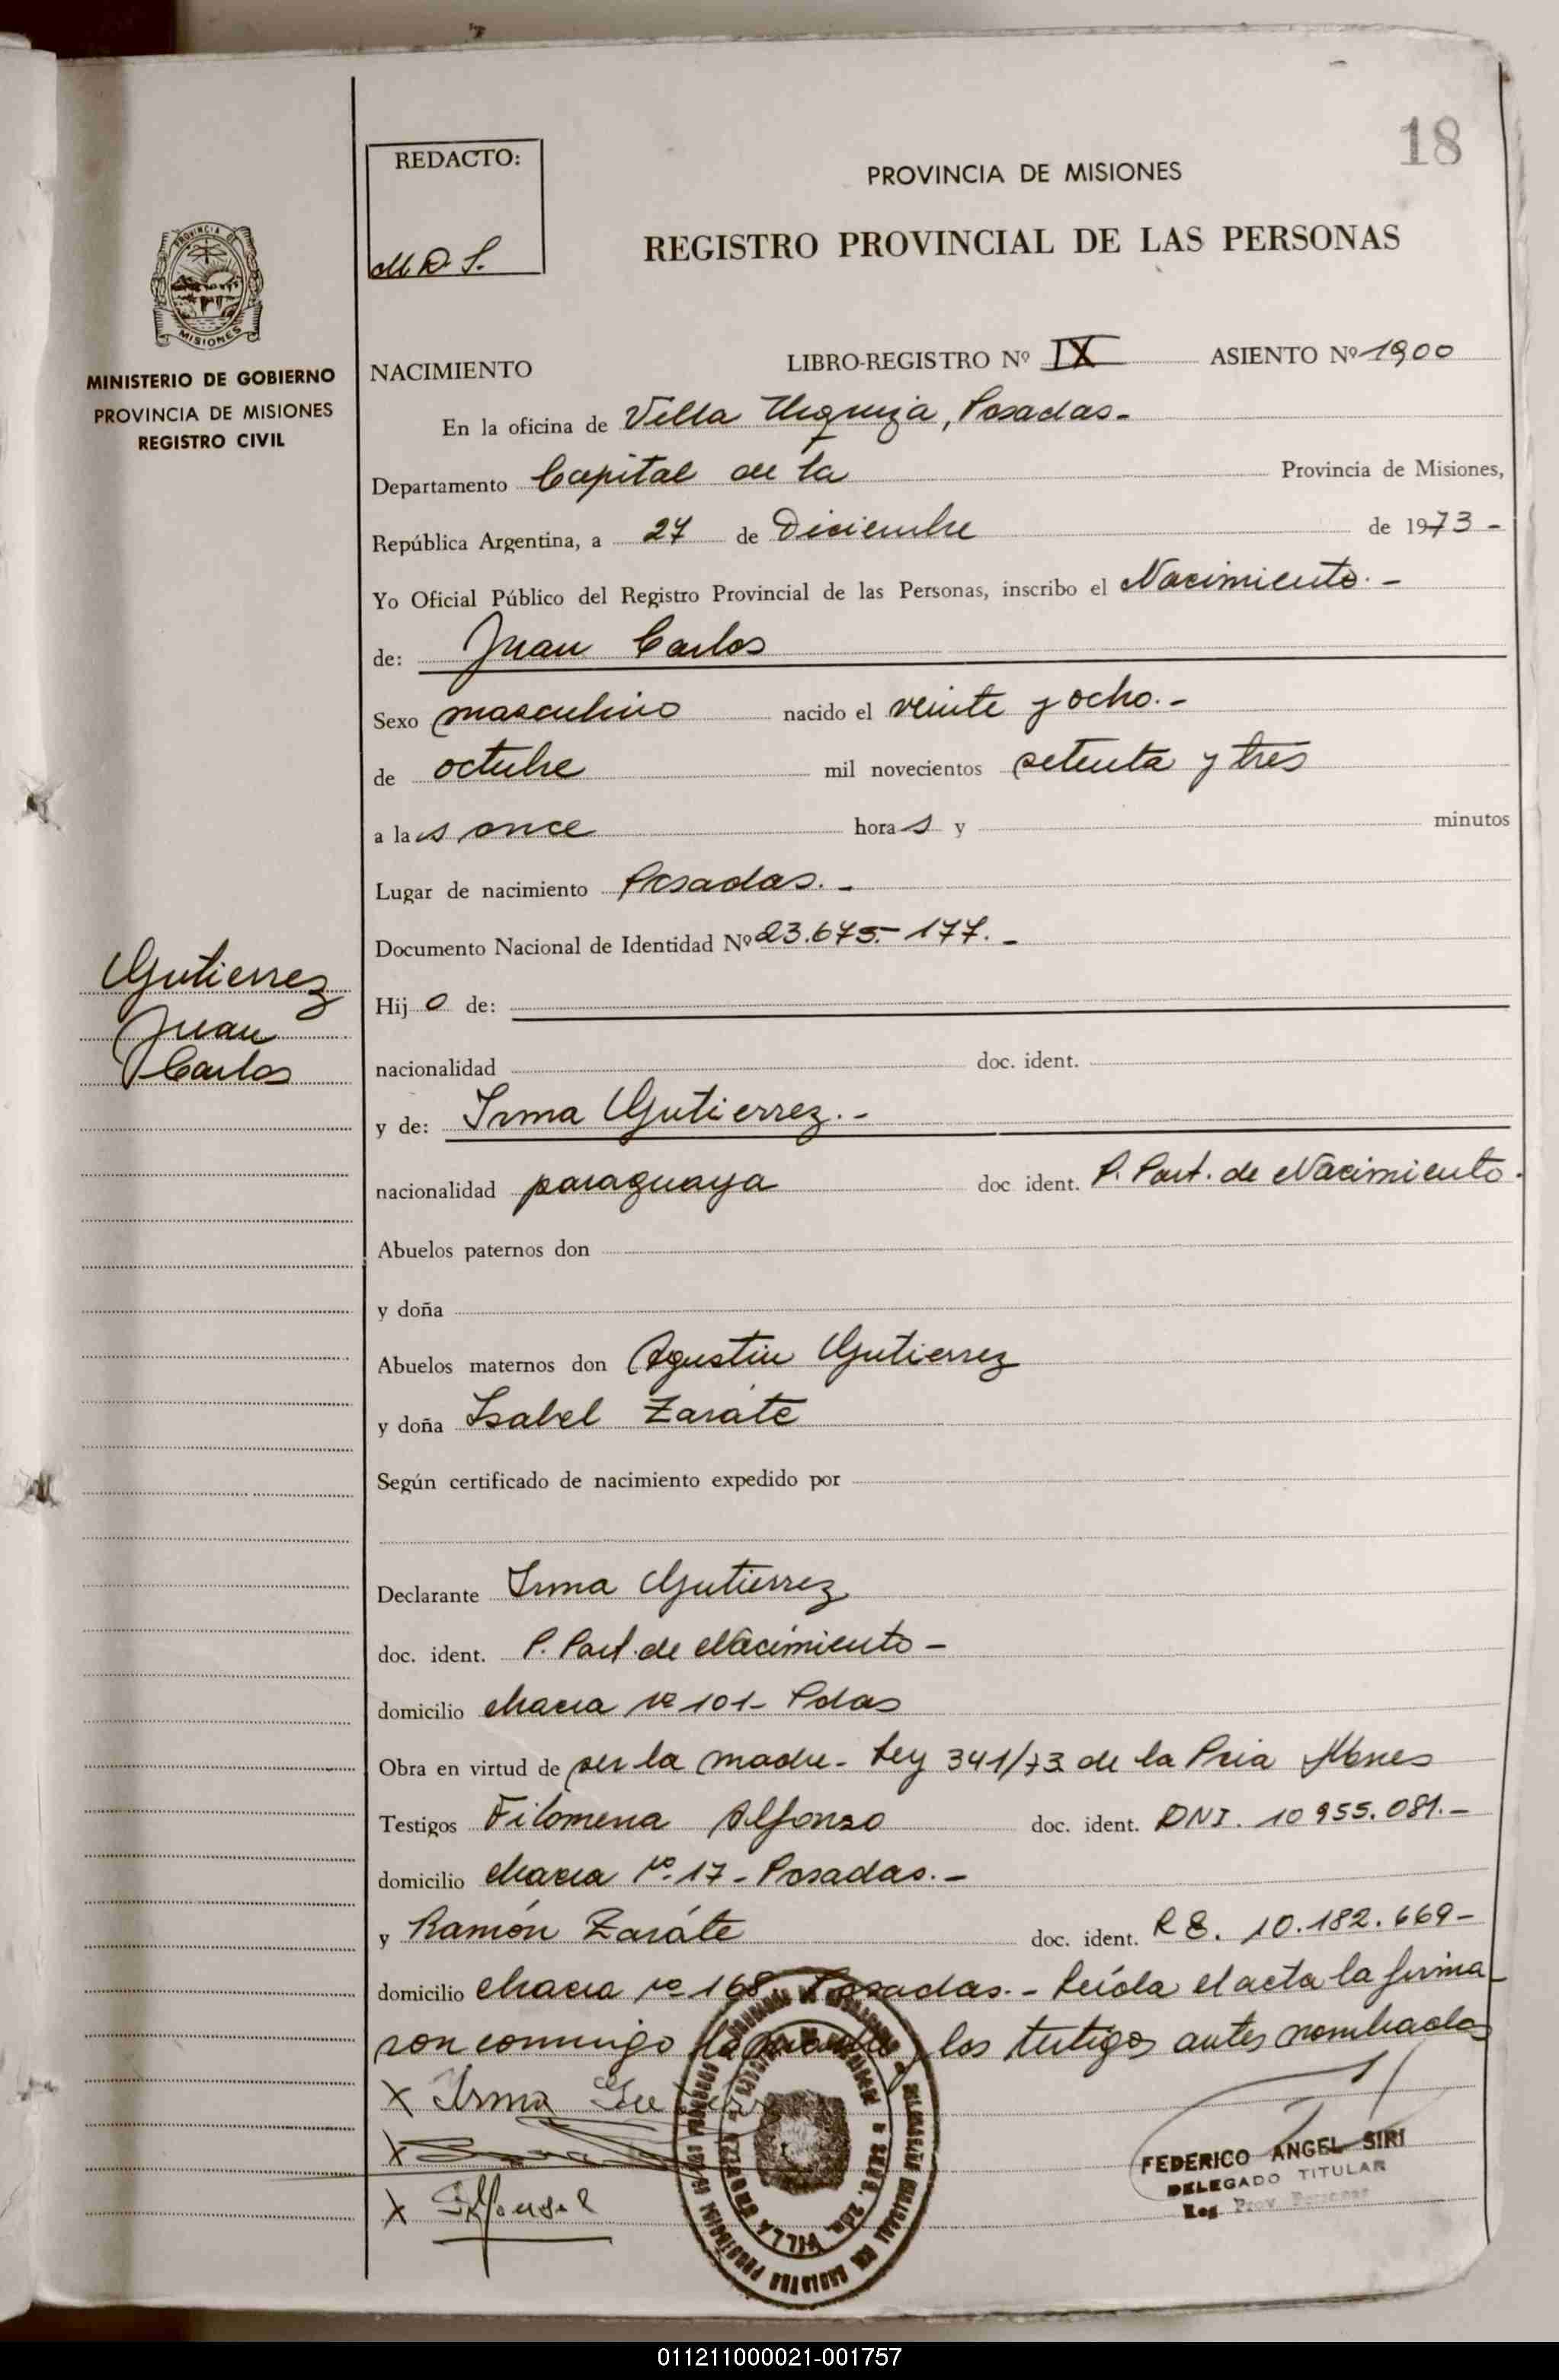 18
REDACTO:
M.D.S.
PROVINCIA DE MISIONES
REGISTRO PROVINCIAL DE LAS PERSONAS
PROVINCIA DE
MISIONES
MINISTERIO DE GOBIERNO
PROVINCIA DE MISIONES
REGISTRO CIVIL
NACIMIENTO LIBRO-REGISTRO Nº IX ASIENTO Nº 1900
En la oficina de Villa Urquiza, Posadas.-
Departamento Capital de la Provincia de Misiones,
República Argentina, a 27 de Diciembre de 1973-
Yo Oficial Público del Registro Provincial de las Personas, inscribo el Nacimiento.-
de: Juan Carlos
Sexo masculino nacido el veinte y ocho.-
de octubre mil novecientos setenta y tres
a las once horas y minutos
Lugar de nacimiento Posadas.-
Documento Nacional de Identidad Nº 23.675.-177.-
Gutierrez
Juan
Carlos
Hijo de:
nacionalidad doc. ident.
y de: Irma Gutierrez.-
nacionalidad paraguaya doc ident. P. Part. de Nacimiento.
Abuelos paternos don
y doña
Abuelos maternos don Agustin Gutierrez
y doña Isabel Zarate
Según certificado de nacimiento expedido por
Declarante Irma Gutierrez
doc. ident. P. Part. de Nacimiento-
domicilio chacra Nº 101- Pdas
Obra en virtud de ser la madre- Ley 341/73 de la Pcia Mnes
Testigos Filomena Alfonso doc. ident. DNI. 10 955.081.-
domicilio chacra Nº 17- Posadas.-
y Ramón Zaráte doc. ident. RE. 10.182.669-
domicilio chacra Nº 168 Posadas.- Leída el acta la firma-
ron conmigo la madre y los testigos antes nombrados
X Irma
X
X
VILLA URQUIZA
FEDERICO ANGEL SIRI
DELEGADO TITULAR
Reg Prov Personas
011211000021-001757